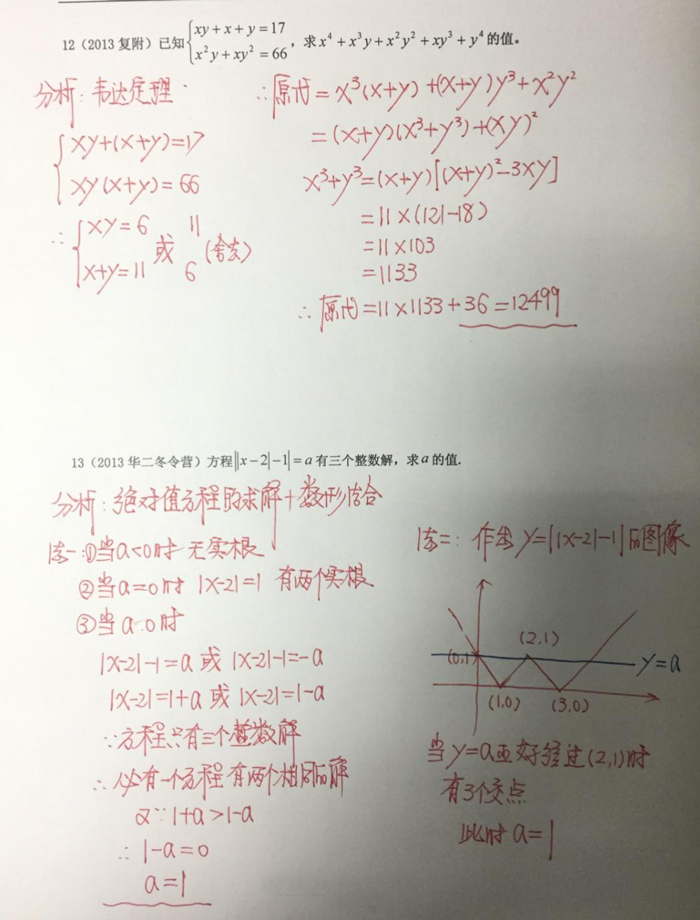 12（2013 复附）已知 { xy+x+y=17 , x²y+xy²=66 , 求 x⁴+x³y+x²y²+xy³+y⁴ 的值。
分析：韦达定理
{ xy+(x+y)=17
xy(x+y)=66
∴ { xy=6 11
或 (舍去)
x+y=11 6
∴ 原式=x³(x+y)+(x+y)y³+x²y²
=(x+y)(x³+y³)+(xy)²
x³+y³=(x+y)[(x+y)²-3xy]
=11×(121-18)
=11×103
=1133
∴ 原式=11×1133+36=12499
13（2013 华二冬令营）方程||x-2|-1|=a 有三个整数解，求 a 的值.
分析：绝对值方程的求解+数形结合
法一：①当a<0时 无实根
②当a=0时 |x-2|=1 有两个实根
③当a>0时
|x-2|-1=a 或 |x-2|-1=-a
|x-2|=1+a 或 |x-2|=1-a
∵方程只有三个整数解
∴必有一个方程有两个相同的解
又∵1+a>1-a
∴ 1-a=0
a=1
法二：作出 y=||x-2|-1|的图像
(2,1)
(0,1)
y=a
(1,0) (3,0)
当y=a正好经过(2,1)时
有3个交点
此时 a=1